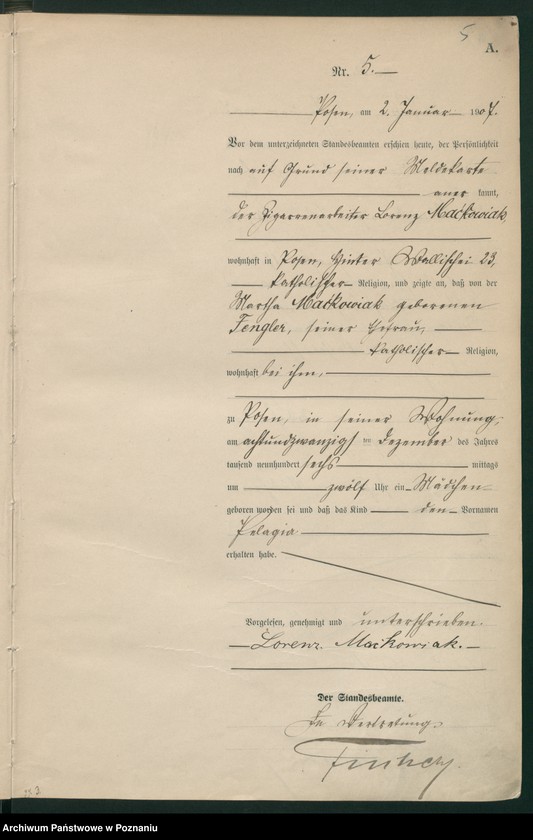 5
A.
Nr. 5.
Posen, am 2. Januar 1907.
Vor dem unterzeichneten Standesbeamten erschien heute, der Persönlichkeit
nach auf Grund seiner Meldekarte
aner kannt,
der Zigarrenarbeiter Lorenz Maćkowiak,
wohnhaft in Posen, Hinter Wallischei 23,
katholischer Religion, und zeigte an, daß von der
Martha Maćkowiak geborenen
Fengler, seiner Ehefrau,
katholischer Religion,
wohnhaft bei ihm,
zu Posen, in seiner Wohnung,
am achtundzwanzigsten Dezember des Jahres
tausend neunhundert sechs mittags
um zwölf Uhr ein Mädchen
geboren worden sei und daß das Kind den Vornamen
Pelagia
erhalten habe.
Vorgelesen, genehmigt und unterschrieben.
Lorenz Maćkowiak.
Der Standesbeamte.
In Vertretung.
Archiwum Państwowe w Poznaniu